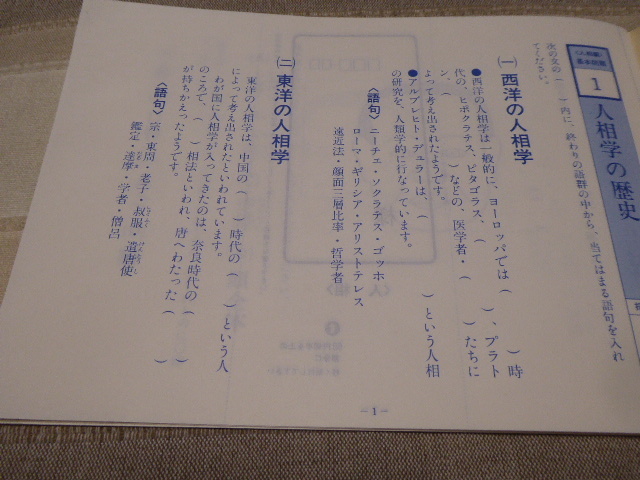 〈人相編〉
基本問題
1
人相学の歴史
次の文の( )内に、終わりの語群の中から、当てはまる語句を入れ
てください。
(一) 西洋の人相学
●西洋の人相学は一般的に、ヨーロッパでは( )時
代の、ヒポクラテス、ピタゴラス、( )、プラト
ン、( )などの、医学者・( )たちに
よって考え出されたようです。
●アルブレヒト・デューラーは、( )という人相
の研究を、人類学的に行なっています。
〈語句〉
ニーチェ・ソクラテス・ゴッホ
ローマ・ギリシア・アリストテレス
遠近法・顔面三層比率・哲学者
(二) 東洋の人相学
東洋の人相学は、中国の( )時代の( )という人
によって考え出されたといわれています。
わが国に人相学が入ってきたのは、奈良時代の( )
のころで、( )相法といわれ、唐へわたった( )
が持ちかえったようです。
〈語句〉
宗・東周・老子・叔服・遣唐使
鑑定・達摩・学者・僧呂
―1―